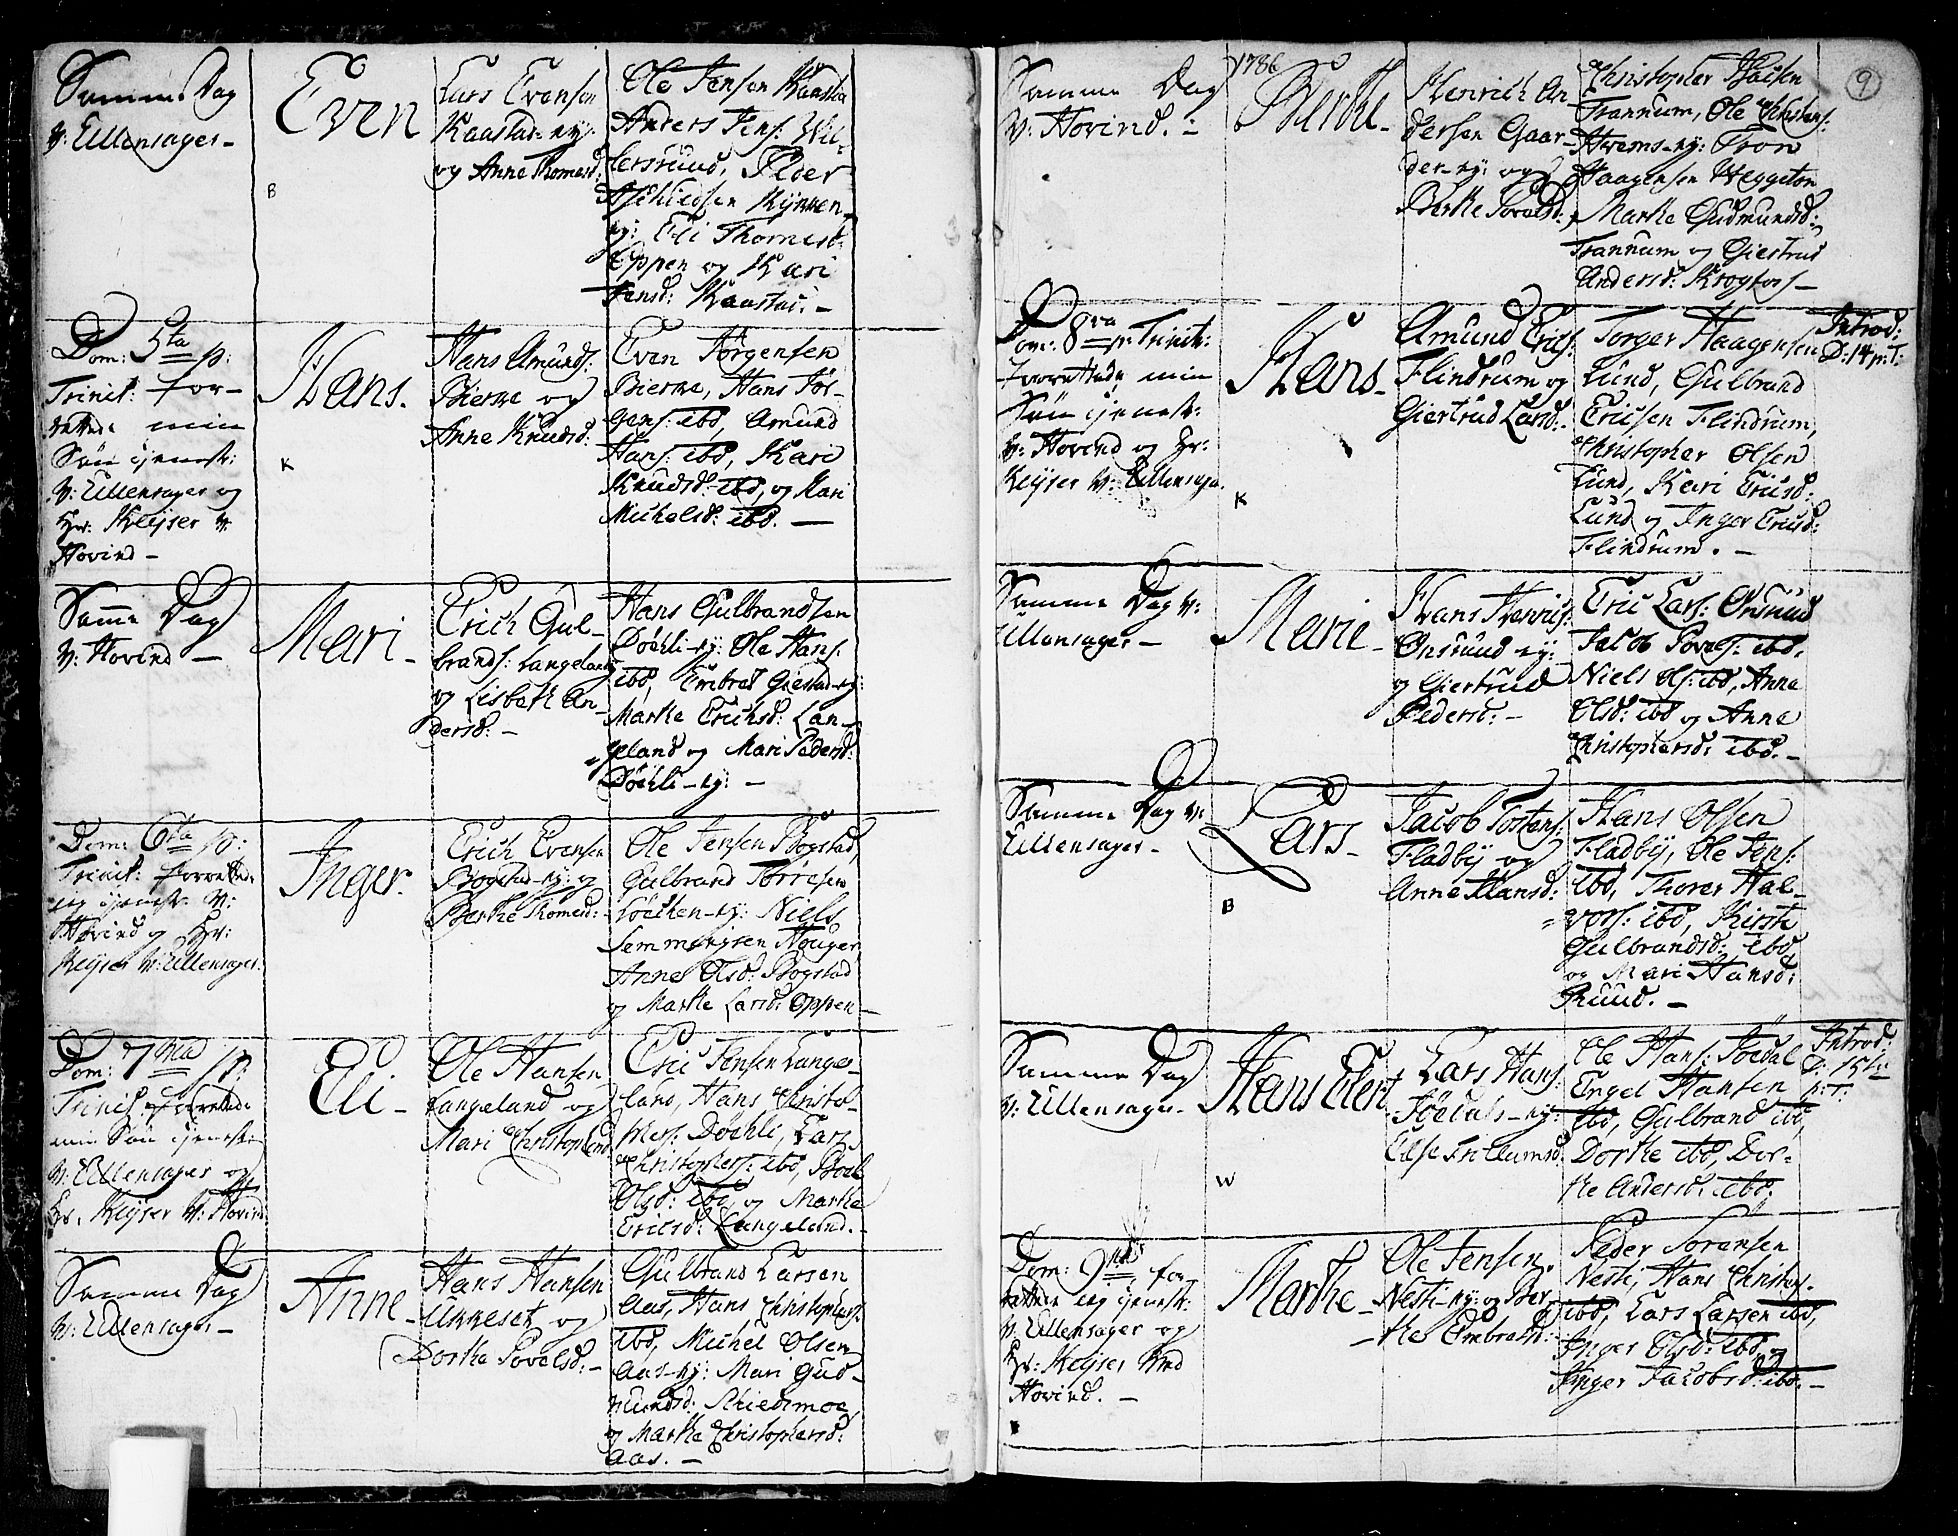 Samme Dag
v: Ullensager –
Even
B
Lars Evensen
Kaastad-ey:
og Anne Thomesd:
Ole Jensen Kaastad
Anders Jens: Wil-
lersruud, Peder
Kynnen-
ey: Eli Thomesd:
Oppen og Kari
Jensd: Kaastad. –
Dom: 5ta p:
Trinit: for-
rettede min
Søn tjenest:
v: Ullensager og
Hr: Keyser v:
Hovind –
Hans.
K
Hans Amunds:
Bierke og
Anne Knudsd:
Even Jørgensen
Bierke, Hans Jør-
gens: ibd, Amund
Hans: ibd, Kari
Knudsd: ibd, og Mari
Michelsd: ibd. –
Samme Dag
v: Hovind –
Mari –
Erich Gul-
brands: Langeland
og Lisbeth An-
dersd: –
Hans Gulbrandsen
Døhli-ey: Ole Hans:
ibd, Embret Giestad-ey:
Marthe Erichsd: Lan-
geland og Mari Pedersd:
Døhli-ey: –
Dom: 6ta p:
Trinit: forrettede
ieg tjenest: v:
Hovind og Hr:
Keyser v: Ullensager.
Inger.
Erich Evensen
Bogstad-ey: og
Berthe Thomesd: –
Ole Jensen Bogstad
Gulbrand Torresen
Løchen-ey: Niels
Semmingsen Houger,
Anne Olsd: Bogstad
og Marthe Larsd: Oppen –
Dom: 7ma p:
Trinit: forrettede
min Søn tjenest:
v: Ullensager og
Hr. Keyser v: Hovind
Eli –
Ole Hansen
Langeland og
Mari Christophersd
Eric Jensen Lange-
land, Hans Christo-
phers: Døhli, Lars
Christophers: ibd, Boel
Olsd: ibd, og Marthe
Ericsd: Langeland. –
Samme Dag
v: Ullensager –
Anne –
Hans Hansen
Ukkeset og
Dorthe Povelsd: –
Gulbrand Larsen
Aas, Hans Christophers:
ibd, Michel Olsen
Aas-ey: Mari Gud-
mundsd: Schiedsmoe
og Marthe Christophersd:
Aas. –
9
1786
Samme Dag
v: Hovind. –
Berthe –
Henrich An-
dersen Gaar-
der-ey: og
Berthe Povelsd:
Christopher
Trannum, Ole Christens:
Hvems-ey: Tron
Haagensen Heggeton
Marthe Gudmundsd:
Trannum og Giertrud
Andersd: Krogfos –
Dom: 8va p: Trinit:
forrettede min
Søn tjenest:
v: Hovind og Hr:
Keyser v: Ullensager.
Hans –
K
Amund Erics:
Flindrum og
Giertrud Larsd: –
Torger Haagensen
Lund, Gulbrand
Ericsen Flindrum,
Christopher Olsen
Lund, Kari Ericsd:
Lund og Inger Ericsd:
Flindrum. –
Introd:
D: 14 p: T:
Samme Dag v:
Ullensager –
Marie –
Hans Henrics:
Onsruud-ey:
og Giertrud
Pedersd: –
Eric Lars: Onsruud
Jacob Povels: ibd.
Niels Ols: ibd, Anne
Olsd: ibd og Anne
Christophersd: ibd. –
Samme Dag v:
Ullensager –
Lars –
B
Jacob Tostens:
Fladby og
Anne Hansd:
Hans Olsen
Fladby, Ole Jens:
ibd, Thorer Hal-
vors: ibd, Kirsti
Gulbrandsd: ibd
og Mari Hansd:
Ruud. –
Samme Dag
v: Ullensager –
Hans Elert
W
Lars Hans:
Jødahls-ey:
Else Intleumsd:
Ole Hans: Jødal
Engel Hansen
ibd, Gulbrand ibd,
Dorthe ibd, Dor-
the Andersd: ibd:
Introd:
D: 15de
p: T:
Dom: 9na for-
rettede ieg tjenest:
v: Ullensager og
Hr: Keyser ved
Hovind. –
Marthe –
Ole Jensen
Nesti-ey: og Ber-
the Embretsd:
Peder Sørensen
Neste, Hans Christop-
ibd, Lars Larsen ibd,
Inger Olsd: ibd og
Inger Jacobsd: ibd. –